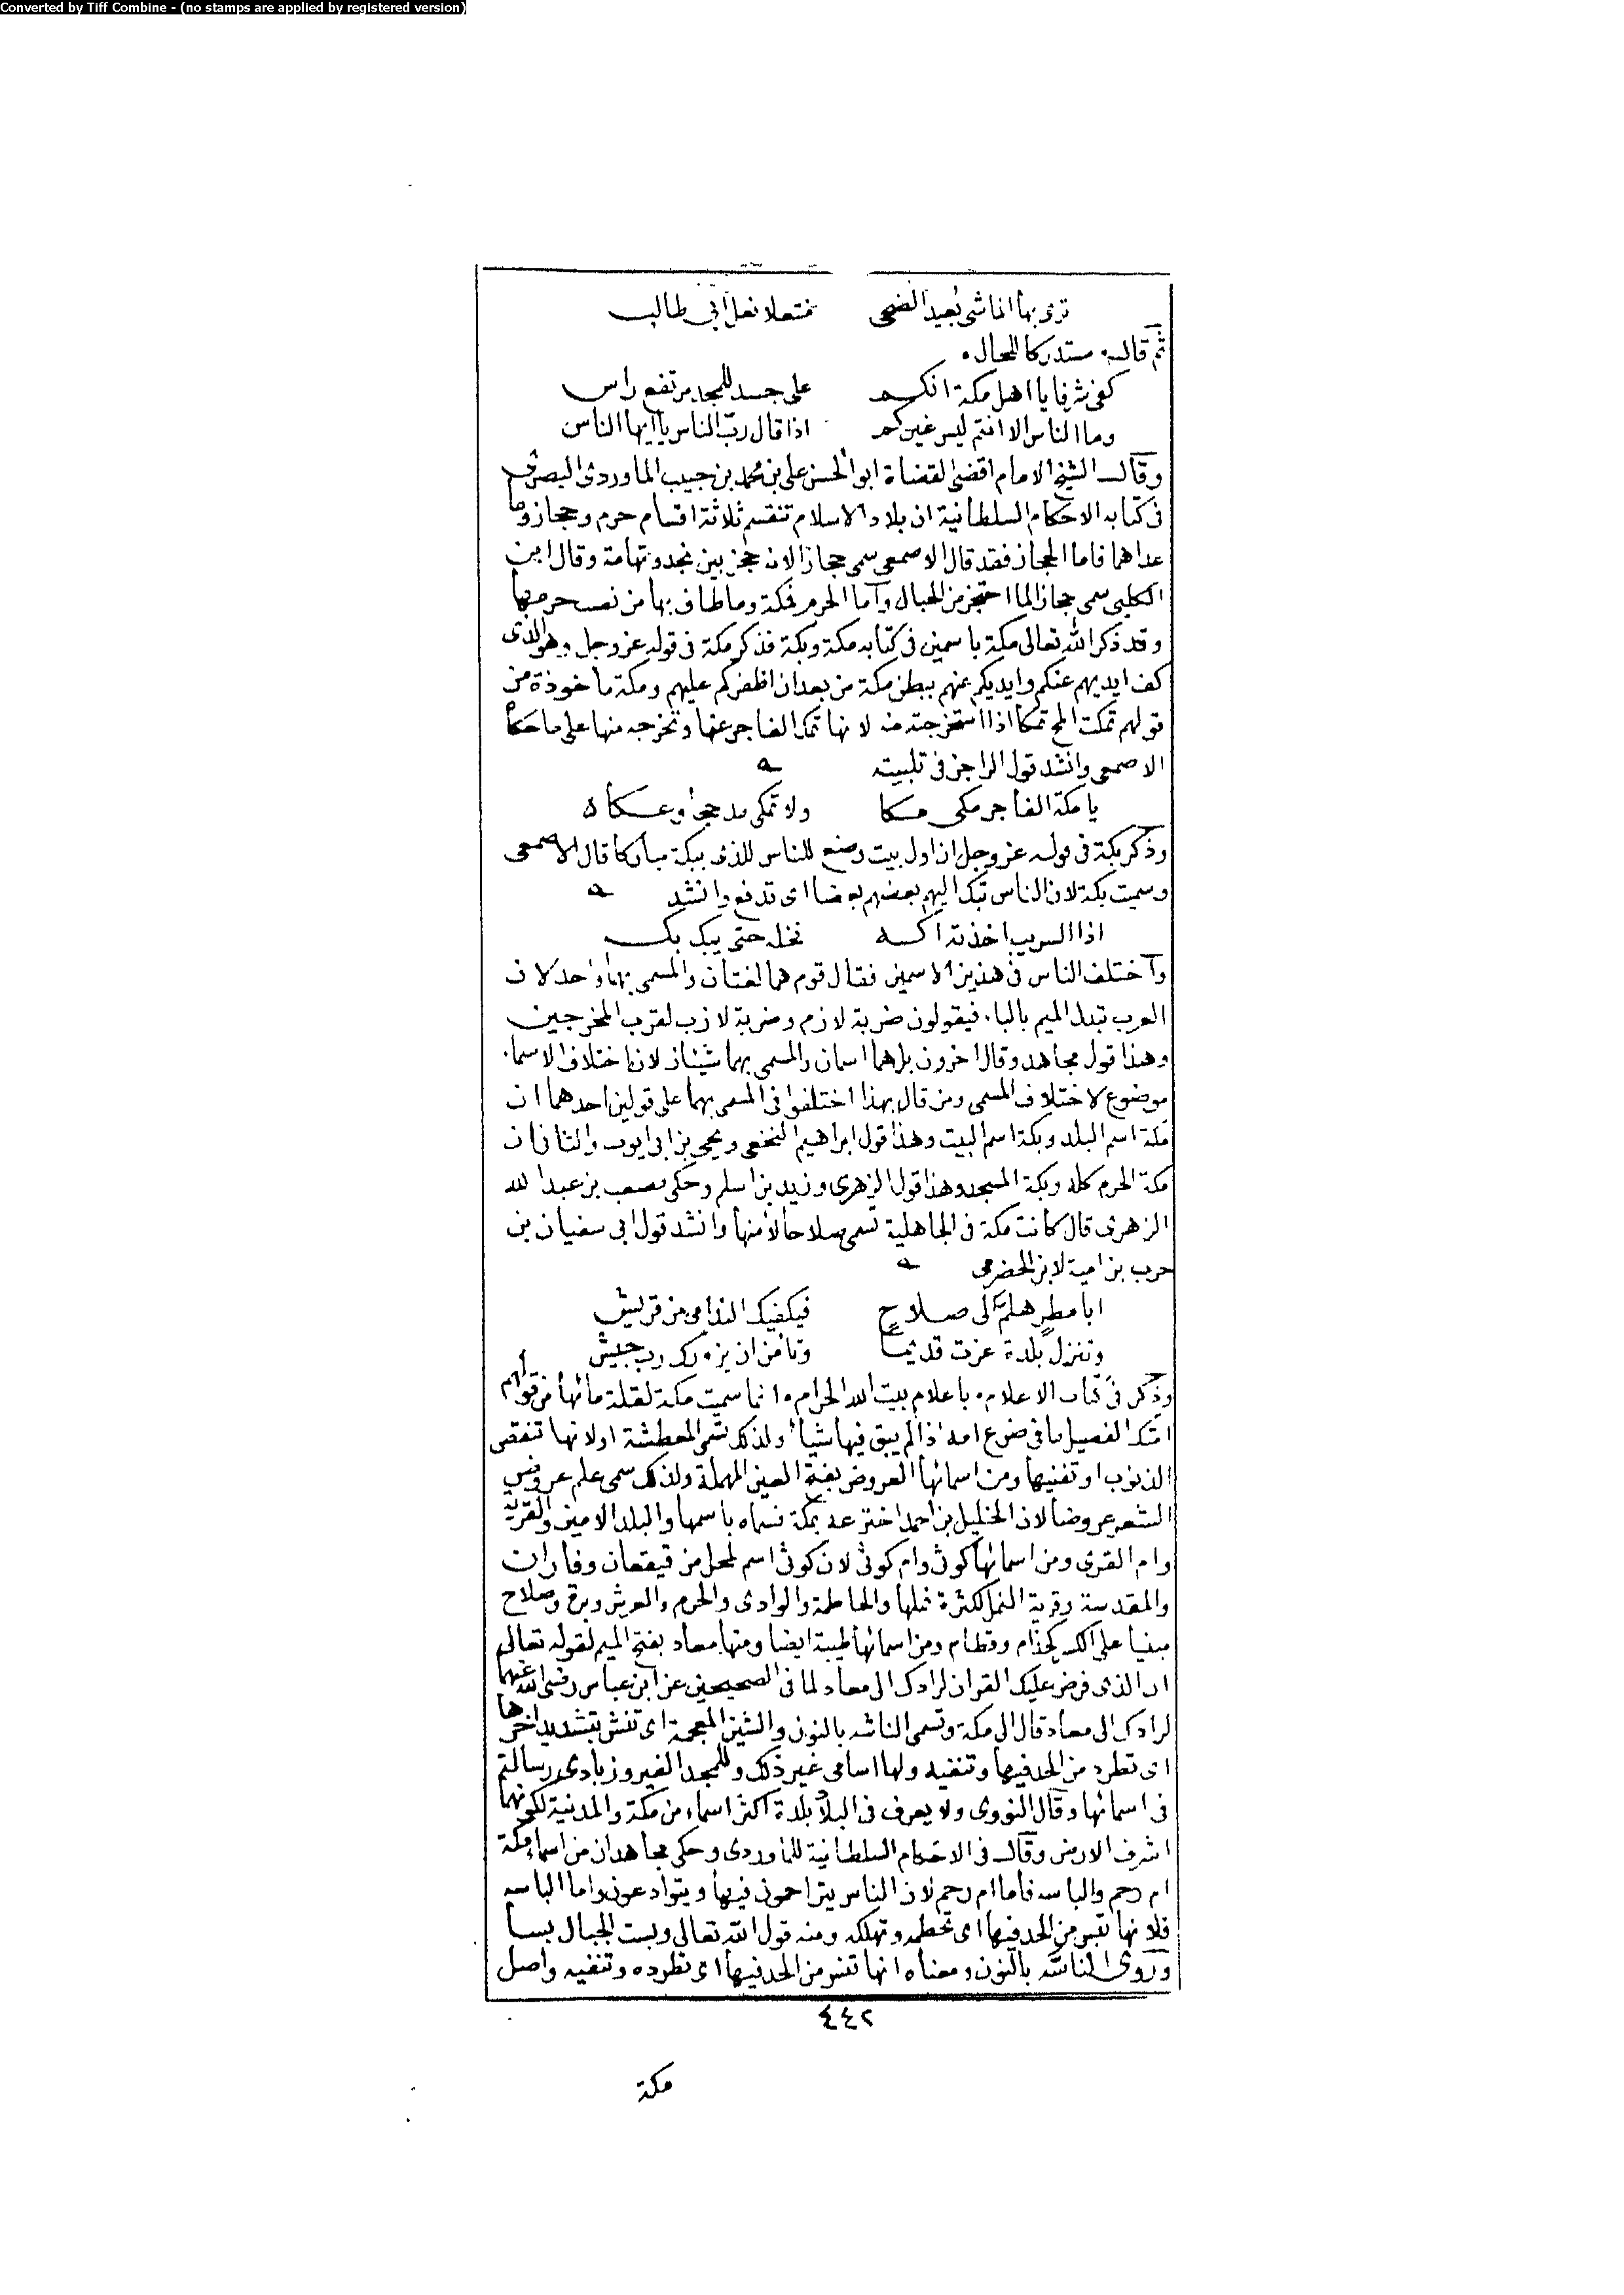 Converted by Tiff Combine - (no stamps are applied by registered version)
ترى بها الماشى بعيد الضحى منتعلا نعل ابي طالب
ثم قال مستدركا للحال
كفى شرفا يا اهل مكة انكم على جسد للمجد مرتفع راس
وما الناس الا انتم ليس غيركم اذا قال رب الناس يا ايها الناس
وقال الشيخ الامام اقضى القضاة ابو الحسن على بن محمد بن حبيب الماوردى البصرى
فى كتابه الاحكام السلطانية ان بلاد الاسلام تنقسم ثلاثة اقسام حرم وحجاز وما
عداهما فاما الحجاز فقد قال الاصمعى سمى حجازا لانه حجز بين نجد وتهامة وقال ابن
الكلبى سمى حجازا لما احتجز من الجبال واما الحرم فمكة وما طاف بها من نصب حرمها
وقد ذكر الله تعالى مكة باسمين فى كتابه مكة وبكة فذكر مكة فى قوله عز وجل وهو الذى
كف ايديهم عنكم وايديكم عنهم ببطن مكة من بعد ان اظفركم عليهم ومكة ماخوذة من
قولهم تمكت المخ تمكا اذا استخرجته منه لانها تمك الفاجر عنها وتخرجه منها على ما حكا
الاصمعى وانشد قول الراجز فى تلبيته
يا مكة الفاجر مكى مكا ولا تمكى مذحجا وعكا
وذكر بكة فى قوله عز وجل ان اول بيت وضع للناس للذى ببكة مباركا قال الاصمعى
وسميت بكة لان الناس تبك اليهم بعضهم بعضا اى تدفع وانشد
اذا السريب اخذته اكه فخله حتى يبك بكه
واختلف الناس فى هذين الاسمين فقال قوم هما لغتان والمسمى بهما واحد لان
العرب تبدل الميم بالباء فيقولون ضربة لازم وضربة لازب لقرب المخرجين
وهذا قول مجاهد وقال اخرون بل هما اسمان والمسمى بهما شيئان لان اختلاف الاسماء
موضوع لاختلاف المسمى ومن قال بهذا اختلفوا فى المسمى بهما على قولين احدهما ان
مكة اسم البلد وبكة اسم البيت وهذا قول ابراهيم النخعى ويحيى بن ابى ايوب والثانى ان
مكة الحرم كله وبكة المسجد وهذا قول الزهرى وزيد بن اسلم وحكى مصعب بن عبد الله
الزهرى قال كانت مكة فى الجاهلية تسمى صلاحا لامنها وانشد قول ابى سفيان بن
حرب بن امية لابن الحضرمى
ابا مطر هلم الى صلاح فيكفيك الندامى من قريش
وتنزل بلدة عزت قديما وتامن ان يزورك رب جيش
وذكر فى كتاب الاعلام باعلام بيت الله الحرام انما سميت مكة لقلة مائها من قولهم
امتك الفصيل ما فى ضرع امه اذا لم يبق فيها شيأ ولذلك تسمى المعطشة او لانها تنقص
الذنوب او تفنيها ومن اسمائها العروض بفتح العين المهملة ولذلك سمى علم عروض
الشعر عروضا لان الخليل بن احمد اخترعه بمكة فسماه باسمها والبلد الامين والقرية
وام القرى ومن اسمائها كوثى وام كوثى لان كوثى اسم لمحل من قيقعان وفاران
والمقدسة وقرية النمل لكثرة نملها والحاطمة والوادى والحرم والعرش وبرة وصلاح
مبنيا على الكسر كحذام وقطام ومن اسمائها طيبة ايضا ومنها معاد بفتح الميم لقوله تعالى
ان الذى فرض عليك القران لرادك الى معاد لما فى الصحيحين عن ابن عباس رضى الله عنهما
لرادك الى معاد قال الى مكة وتسمى الناشة بالنون والشين المعجمة اى تنش بتشديد اخرها
اى تطرد من الحد فيها وتنفيه ولها اسامى غير ذلك وللمجد الفيروزبادى رسالة
فى اسمائها وقال النووى ولا يعرف فى البلاد بلدة اكثر اسماء من مكة والمدنية لكونهما
اشرف الارض وقال فى الاحكام السلطانية للماوردى وحكى مجاهد ان من اسماء مكة
ام رحم والباسه فاما ام رحم لان الناس يتراحمون فيها ويتوادعون واما الباسه
فلانها تبس من الحد فيها اى تحطمه وتهلكه ومنه قول الله تعالى وبست الجبال بسا
وروى الناشة بالنون ومعناه انها تنس من الحد فيها اى تطرده وتنفيه واصل
٤٤٢
مكة